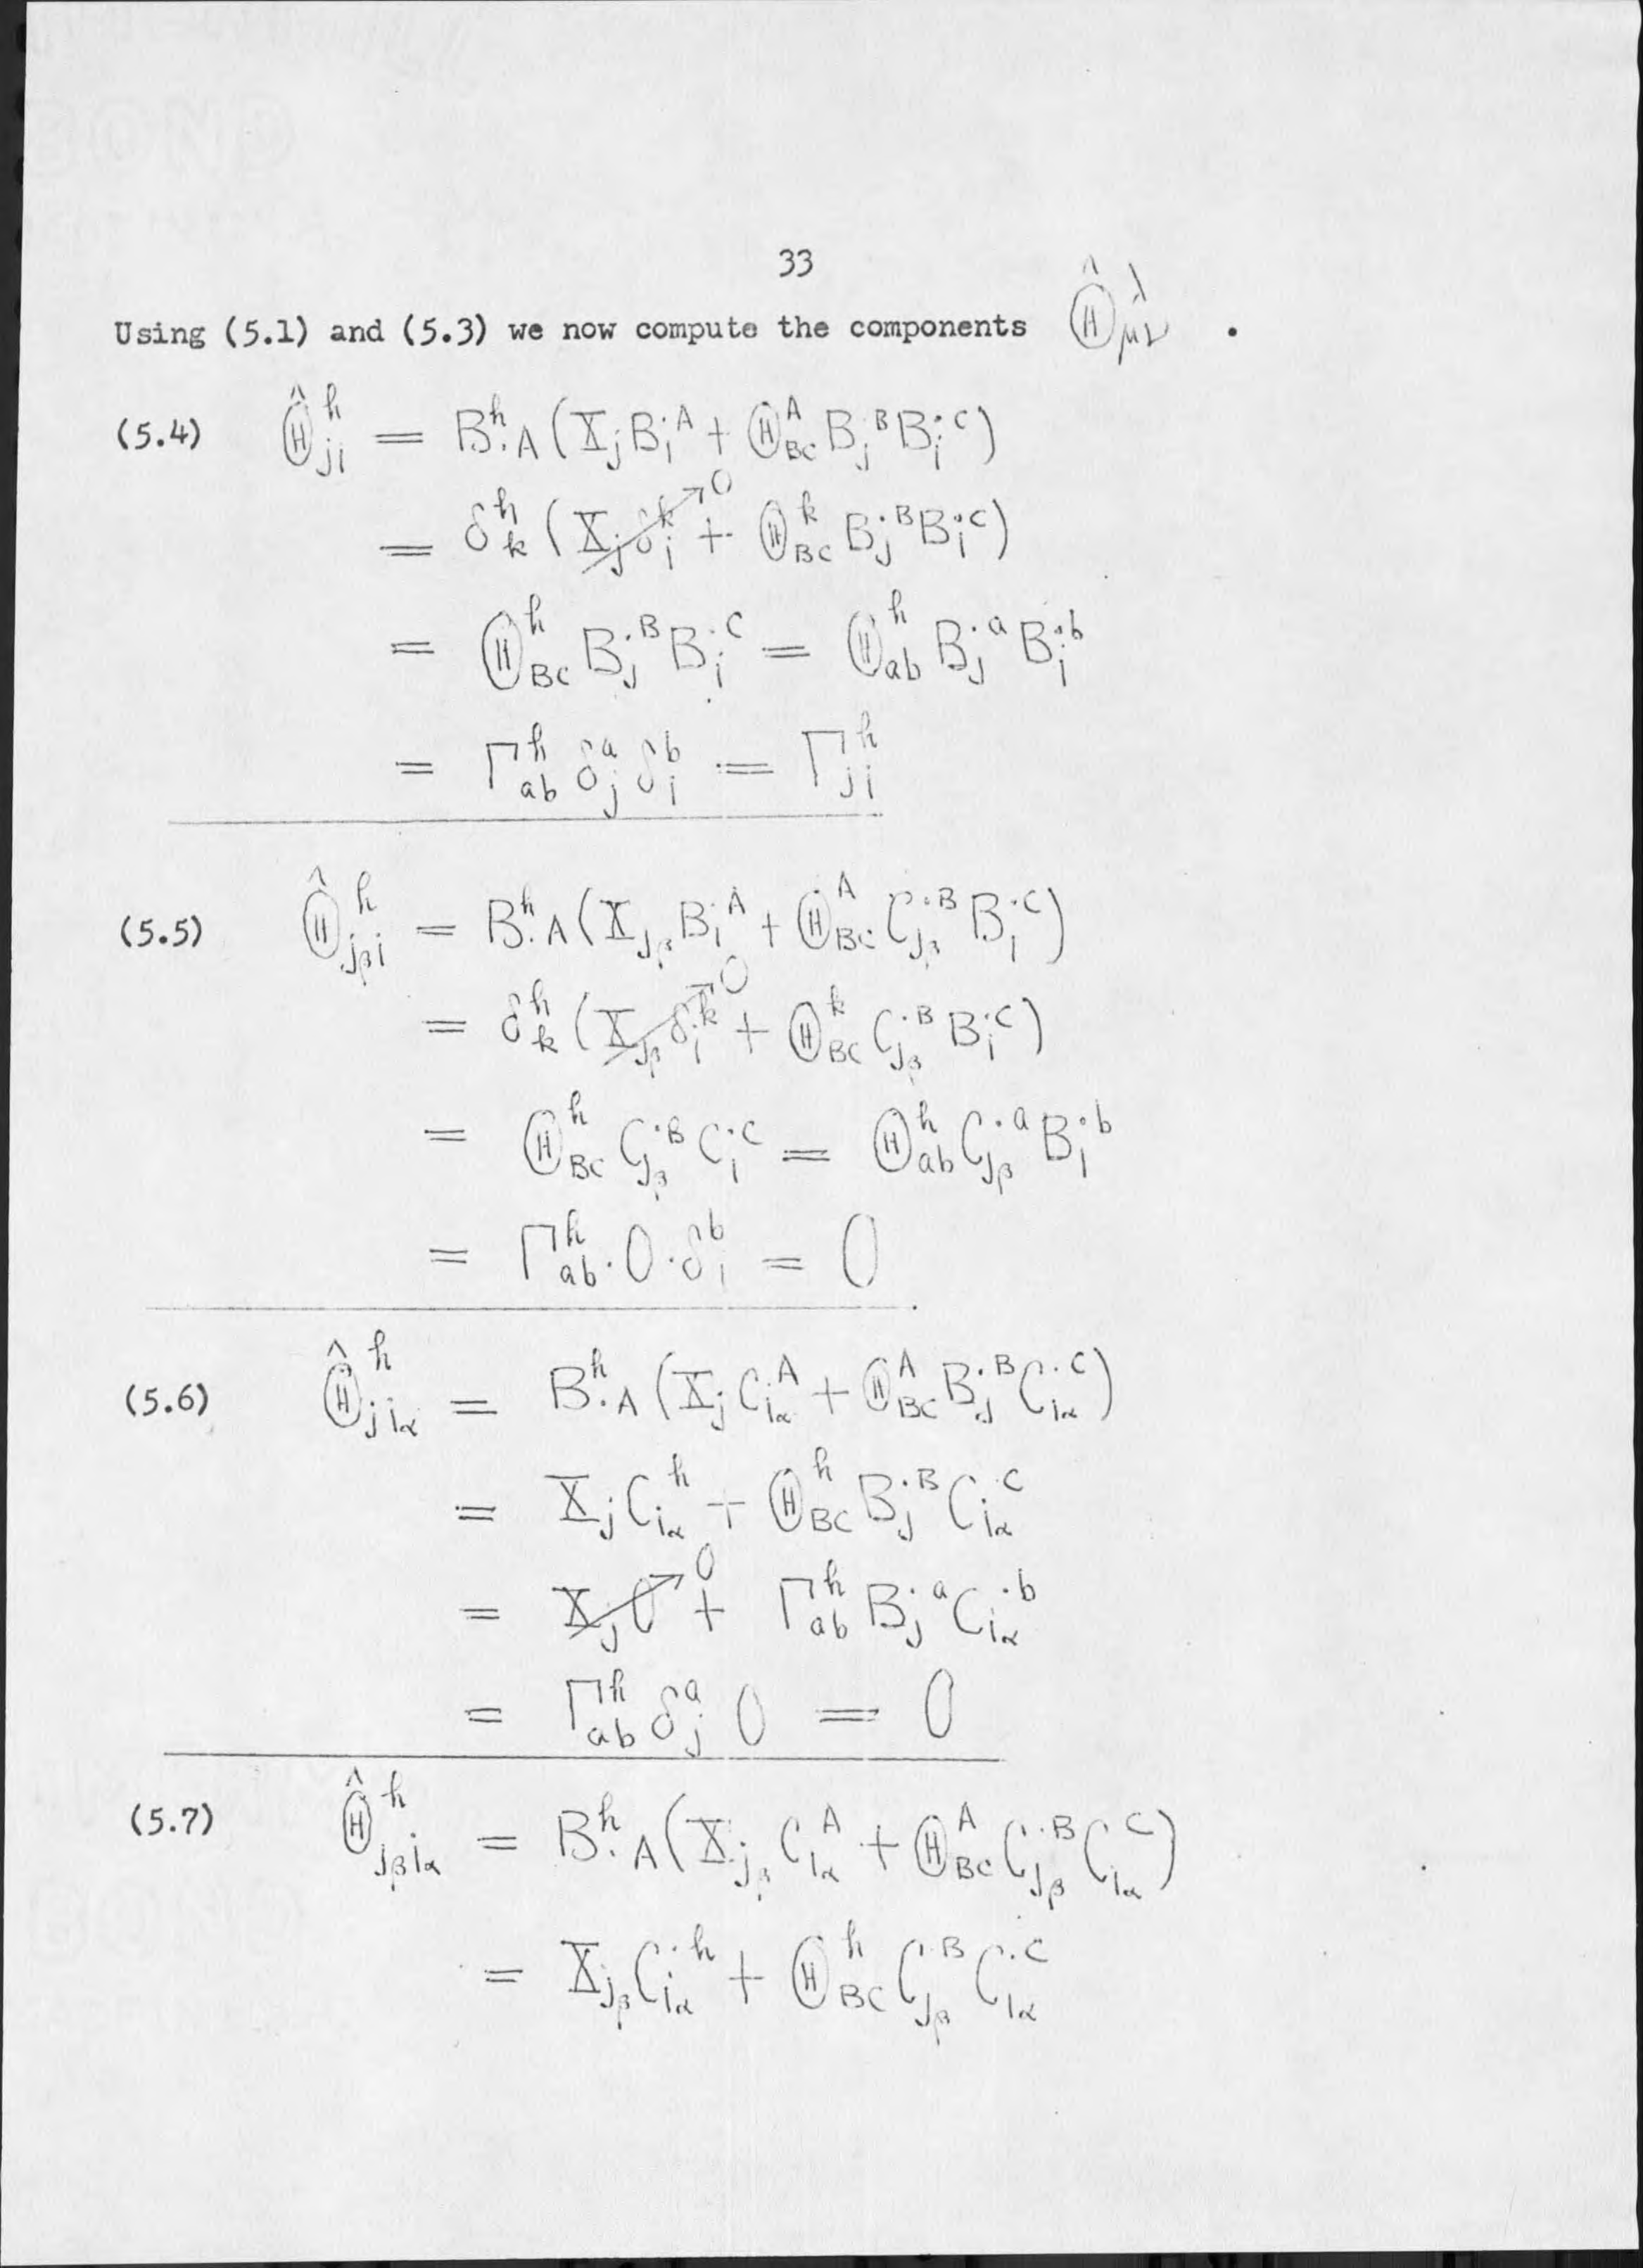 33
Using (5.1) and (5.3) we now compute the components $\hat{\Theta}^{\lambda}_{\mu\nu}$ .
(5.4) $\hat{\Theta}^{h}_{ji} = B^{h}_{\cdot A}(X_j B_i^{\cdot A} + \Theta^{A}_{BC} B_j^{\cdot B} B_i^{\cdot C})$
$= \delta^h_k (\cancelto{0}{X_j \delta^k_i} + \Theta^{k}_{BC} B_j^{\cdot B} B_i^{\cdot C})$
$= \Theta^{h}_{BC} B_j^{\cdot B} B_i^{\cdot C} = \Theta^{h}_{ab} B_j^{\cdot a} B_i^{\cdot b}$
$= \Gamma^{h}_{ab} \delta^a_j \delta^b_i = \Gamma^{h}_{ji}$
(5.5) $\hat{\Theta}^{h}_{j_\beta i} = B^{h}_{\cdot A}(X_{j_\beta} B_i^{\cdot A} + \Theta^{A}_{BC} C_{j_\beta}^{\cdot B} B_i^{\cdot C})$
$= \delta^h_k (\cancelto{0}{X_{j_\beta} \delta_i^{\cdot k}} + \Theta^{k}_{BC} C_{j_\beta}^{\cdot B} B_i^{\cdot C})$
$= \Theta^{h}_{BC} C_{j_\beta}^{\cdot B} C_i^{\cdot C} = \Theta^{h}_{ab} C_{j_\beta}^{\cdot a} B_i^{\cdot b}$
$= \Gamma^{h}_{ab} \cdot 0 \cdot \delta^b_i = 0$
(5.6) $\hat{\Theta}^{h}_{j i_\alpha} = B^{h}_{\cdot A}(X_j C_{i_\alpha}^{\cdot A} + \Theta^{A}_{BC} B_j^{\cdot B} C_{i_\alpha}^{\cdot C})$
$= X_j C_{i_\alpha}^{\cdot h} + \Theta^{h}_{BC} B_j^{\cdot B} C_{i_\alpha}^{\cdot C}$
$= \cancelto{0}{X_j 0} + \Gamma^{h}_{ab} B_j^{\cdot a} C_{i_\alpha}^{\cdot b}$
$= \Gamma^{h}_{ab} \delta^a_j 0 = 0$
(5.7) $\hat{\Theta}^{h}_{j_\beta i_\alpha} = B^{h}_{\cdot A}(X_{j_\beta} C_{i_\alpha}^{\cdot A} + \Theta^{A}_{BC} C_{j_\beta}^{\cdot B} C_{i_\alpha}^{\cdot C})$
$= X_{j_\beta} C_{i_\alpha}^{\cdot h} + \Theta^{h}_{BC} C_{j_\beta}^{\cdot B} C_{i_\alpha}^{\cdot C}$